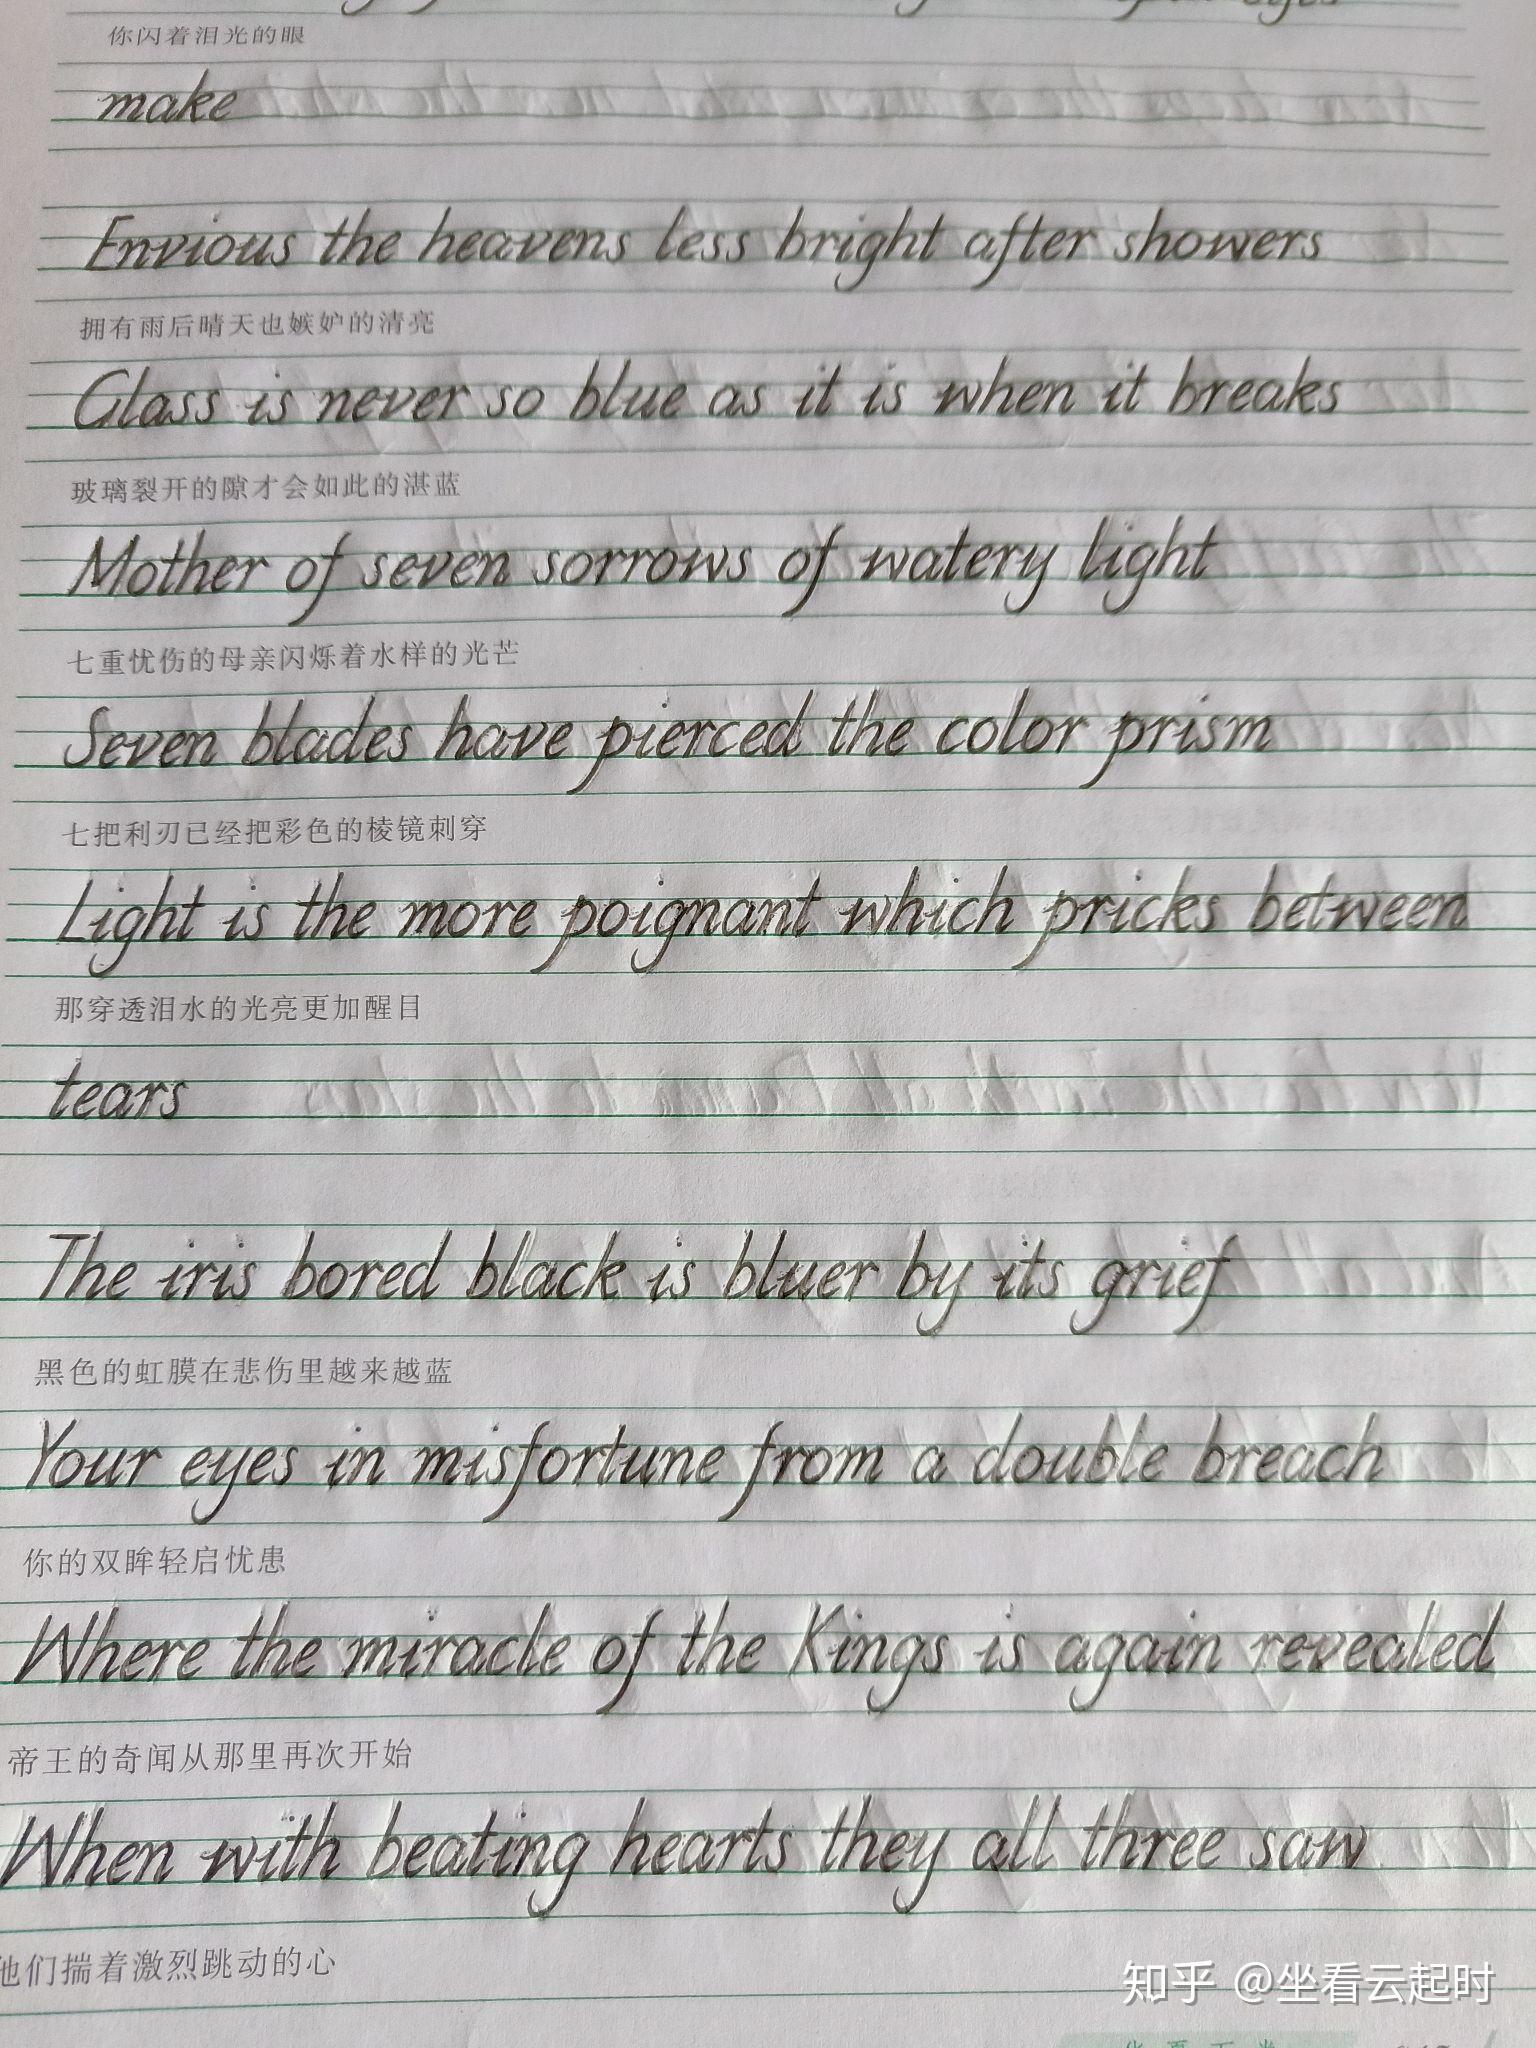 eyes
你闪着泪光的眼
make
Envious the heavens less bright after showers
拥有雨后晴天也嫉妒的清亮
Glass is never so blue as it is when it breaks
玻璃裂开的隙才会如此的湛蓝
Mother of seven sorrows of watery light
七重忧伤的母亲闪烁着水样的光芒
Seven blades have pierced the color prism
七把利刃已经把彩色的棱镜刺穿
Light is the more poignant which pricks between
那穿透泪水的光亮更加醒目
tears
The iris bored black is bluer by its grief
黑色的虹膜在悲伤里越来越蓝
Your eyes in misfortune from a double breach
你的双眸轻启忧患
Where the miracle of the Kings is again revealed
帝王的奇闻从那里再次开始
When with beating hearts they all three saw
他们揣着激烈跳动的心
知乎 @坐看云起时